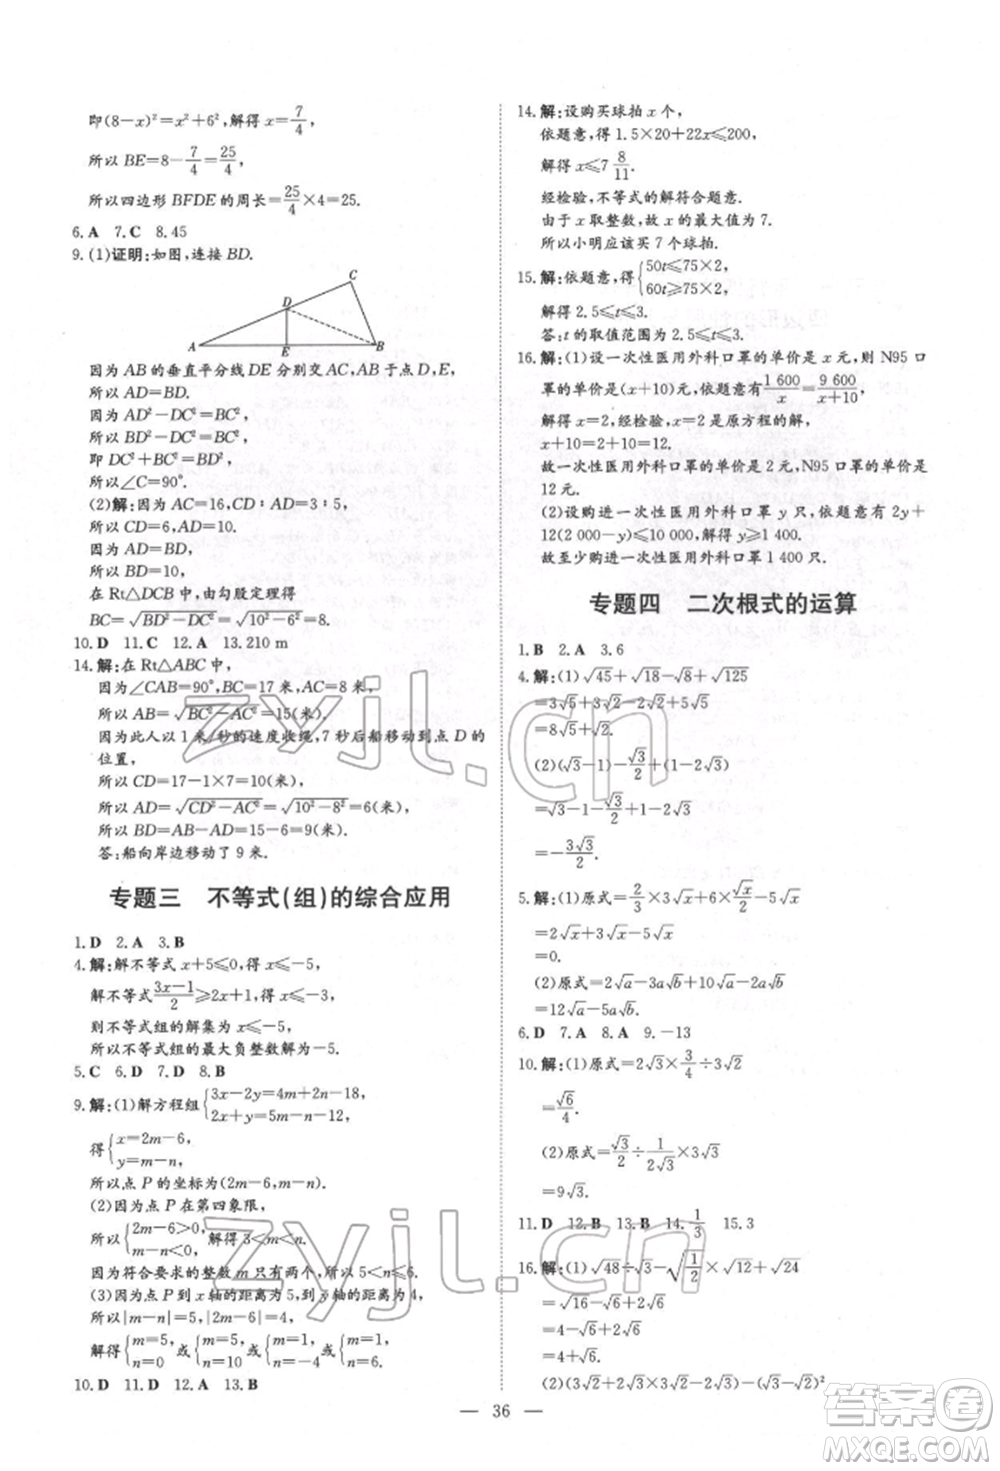 即(8-x)²=x²+6²,解得 x=7/4,
所以 BE=8-7/4=25/4,
所以四边形 BFDE 的周长=25/4×4=25.
6. A 7. C 8. 45
9. (1)证明:如图,连接 BD.
C
D
A
E
B
因为 AB 的垂直平分线 DE 分别交 AC,AB 于点 D,E,
所以 AD=BD.
因为 AD²-DC²=BC²,
所以 BD²-DC²=BC²,
即 DC²+BC²=BD²,
所以∠C=90°.
(2)解:因为 AC=16,CD∶AD=3∶5,
所以 CD=6,AD=10.
所以 BD=10,
在 Rt△DCB 中,由勾股定理得
BC=√(BD²-DC²)=√(10²-6²)=8.
10. D 11. C 12. A 13. 210 m
14. 解:在 Rt△ABC 中,
因为∠CAB=90°,BC=17 米,AC=8 米,
所以 AB=√(BC²-AC²)=15(米).
因为此人以 1 米/秒的速度收绳,7 秒后船移动到点 D 的
位置,
所以 CD=17-1×7=10(米),
所以 AD=√(CD²-AC²)=√(10²-8²)=6(米),
所以 BD=AB-AD=15-6=9(米).
答:船向岸边移动了 9 米.
专题三 不等式(组)的综合应用
1. D 2. A 3. B
4. 解:解不等式 x+5≤0,得 x≤-5,
解不等式(3x-1)/2≥2x+1,得 x≤-3,
则不等式组的解集为 x≤-5,
所以不等式组的最大负整数解为-5.
5. C 6. D 7. D 8. B
9. 解:(1)解方程组{3x-2y=4m+2n-18, 2x+y=4m-n-12,
得{x=2m-6, y=m-n,
所以点 P 的坐标为(2m-6,m-n).
(2)因为点 P 在第四象限,
所以{2m-6>0, m-n<0, 解得 3<m<n.
因为符合要求的整数 m 只有两个,所以 5<n≤6.
(3)因为点 P 到 x 轴的距离为5,到 y 轴的距离为4,
所以|m-n|=5,|2m-6|=4,
解得{m=5, n=0 或{m=5, n=10 或{m=1, n=-4 或{m=1, n=6.
10. D 11. D 12. A 13. B
14. 解:设购买球拍 x 个,
依题意,得 1.5×20+22x≤200,
解得 x≤7 8/11.
经检验,不等式的解符合题意.
由于 x 取整数,故 x 的最大值为 7.
所以小明应该买 7 个球拍.
15. 解:依题意,得{50t≤75×2, 60t≥75×2,
解得 2.5≤t≤3.
答:t 的取值范围为 2.5≤t≤3.
16. 解:(1)设一次性医用外科口罩的单价是 x 元,则 N95 口
罩的单价是(x+10)元,依题意有 1 600/x=9 600/(x+10),
解得 x=2,经检验,x=2 是原方程的解,
x+10=2+10=12.
故一次性医用外科口罩的单价是 2 元,N95 口罩的单价是
12 元.
(2)设购进一次性医用外科口罩 y 只,依题意有 2y+
12(2 000-y)≤10 000,解得 y≥1 400.
故至少购进一次性医用外科口罩 1 400 只.
专题四 二次根式的运算
1. B 2. A 3. 6
4. 解:(1)√45+√18-√8+√125
=3√5+3√2-2√2+5√5
=8√5+√2.
(2)(√3-1)-√3/2+(1-2√3)
=√3-1-√3/2+1-2√3
=-3√3/2.
5. 解:(1)原式=2/3×3√x+6×√x/2-5√x
=2√x+3√x-5√x
=0.
(2)原式=12√a-3a√a-2a√a
=12√a-5a√a.
6. D 7. A 8. A 9. -13
10. 解:(1)原式=2√3×3/4÷3√2
=√6/4.
(2)原式=√3/2÷1/(2√3)×3√3
=9√3.
11. D 12. B 13. B 14. 1/3 15. 3
16. 解:(1)√48÷√3-√(1/2)×√12+√24
=√16-√6+2√6
=4-√6+2√6
=4+√6.
(2)(3√2+2√3)(3√2-2√3)-(√3-√2)²
36
zyjl.cn
zyjl.cn
答案圈
MXQE.COM